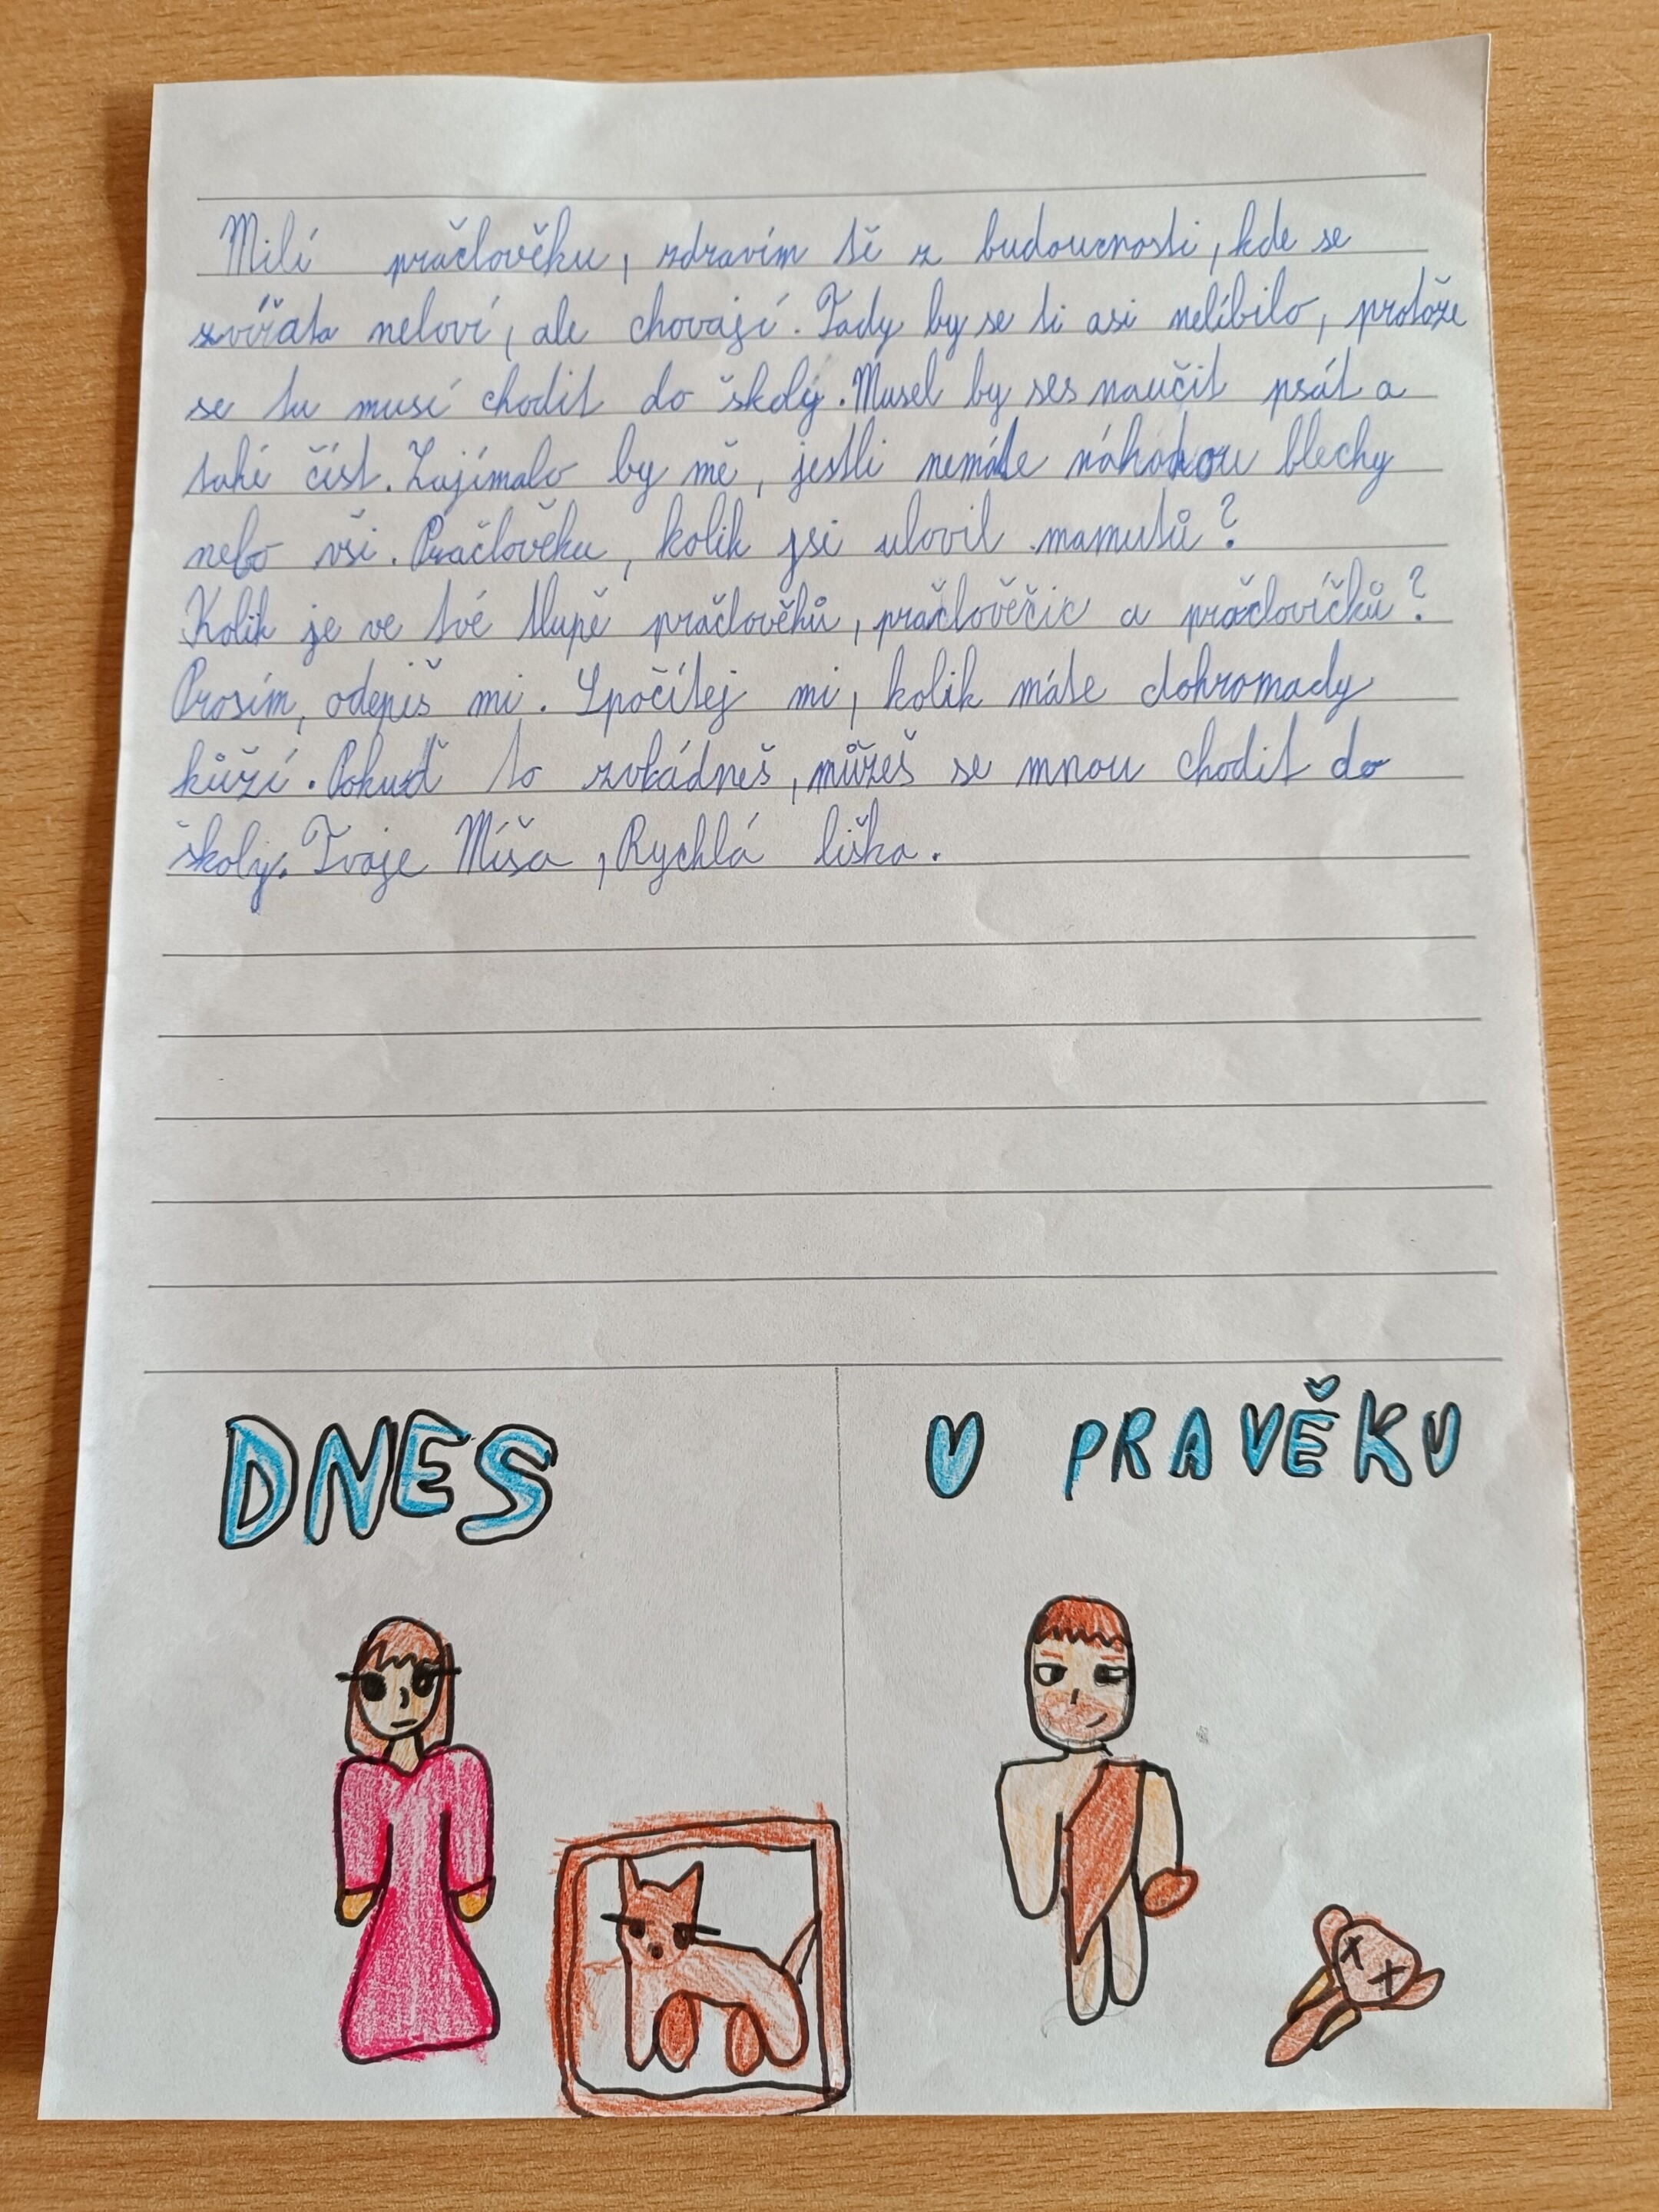 Milí pračlověku, zdravím tě z budoucnosti, kde se
zvířata neloví, ale chovají. Tady by se ti asi nelíbilo, protože
se tu musí chodit do školy. Musel by ses naučit psát a
také číst. Zajímalo by mě, jestli nemáte náhodou blechy
nebo vši. Pračlověku, kolik jsi ulovil mamutů?
Kolik je ve tvé tlupě pračlověků, pračlověčic a pračlovíčků?
Prosím, odepiš mi. Spočítej mi, kolik máte dohromady
kůží. Pokuď to zvládneš, můžeš se mnou chodit do
školy. Tvoje Míša, Rychlá liška.
DNES
V PRAVĚKU